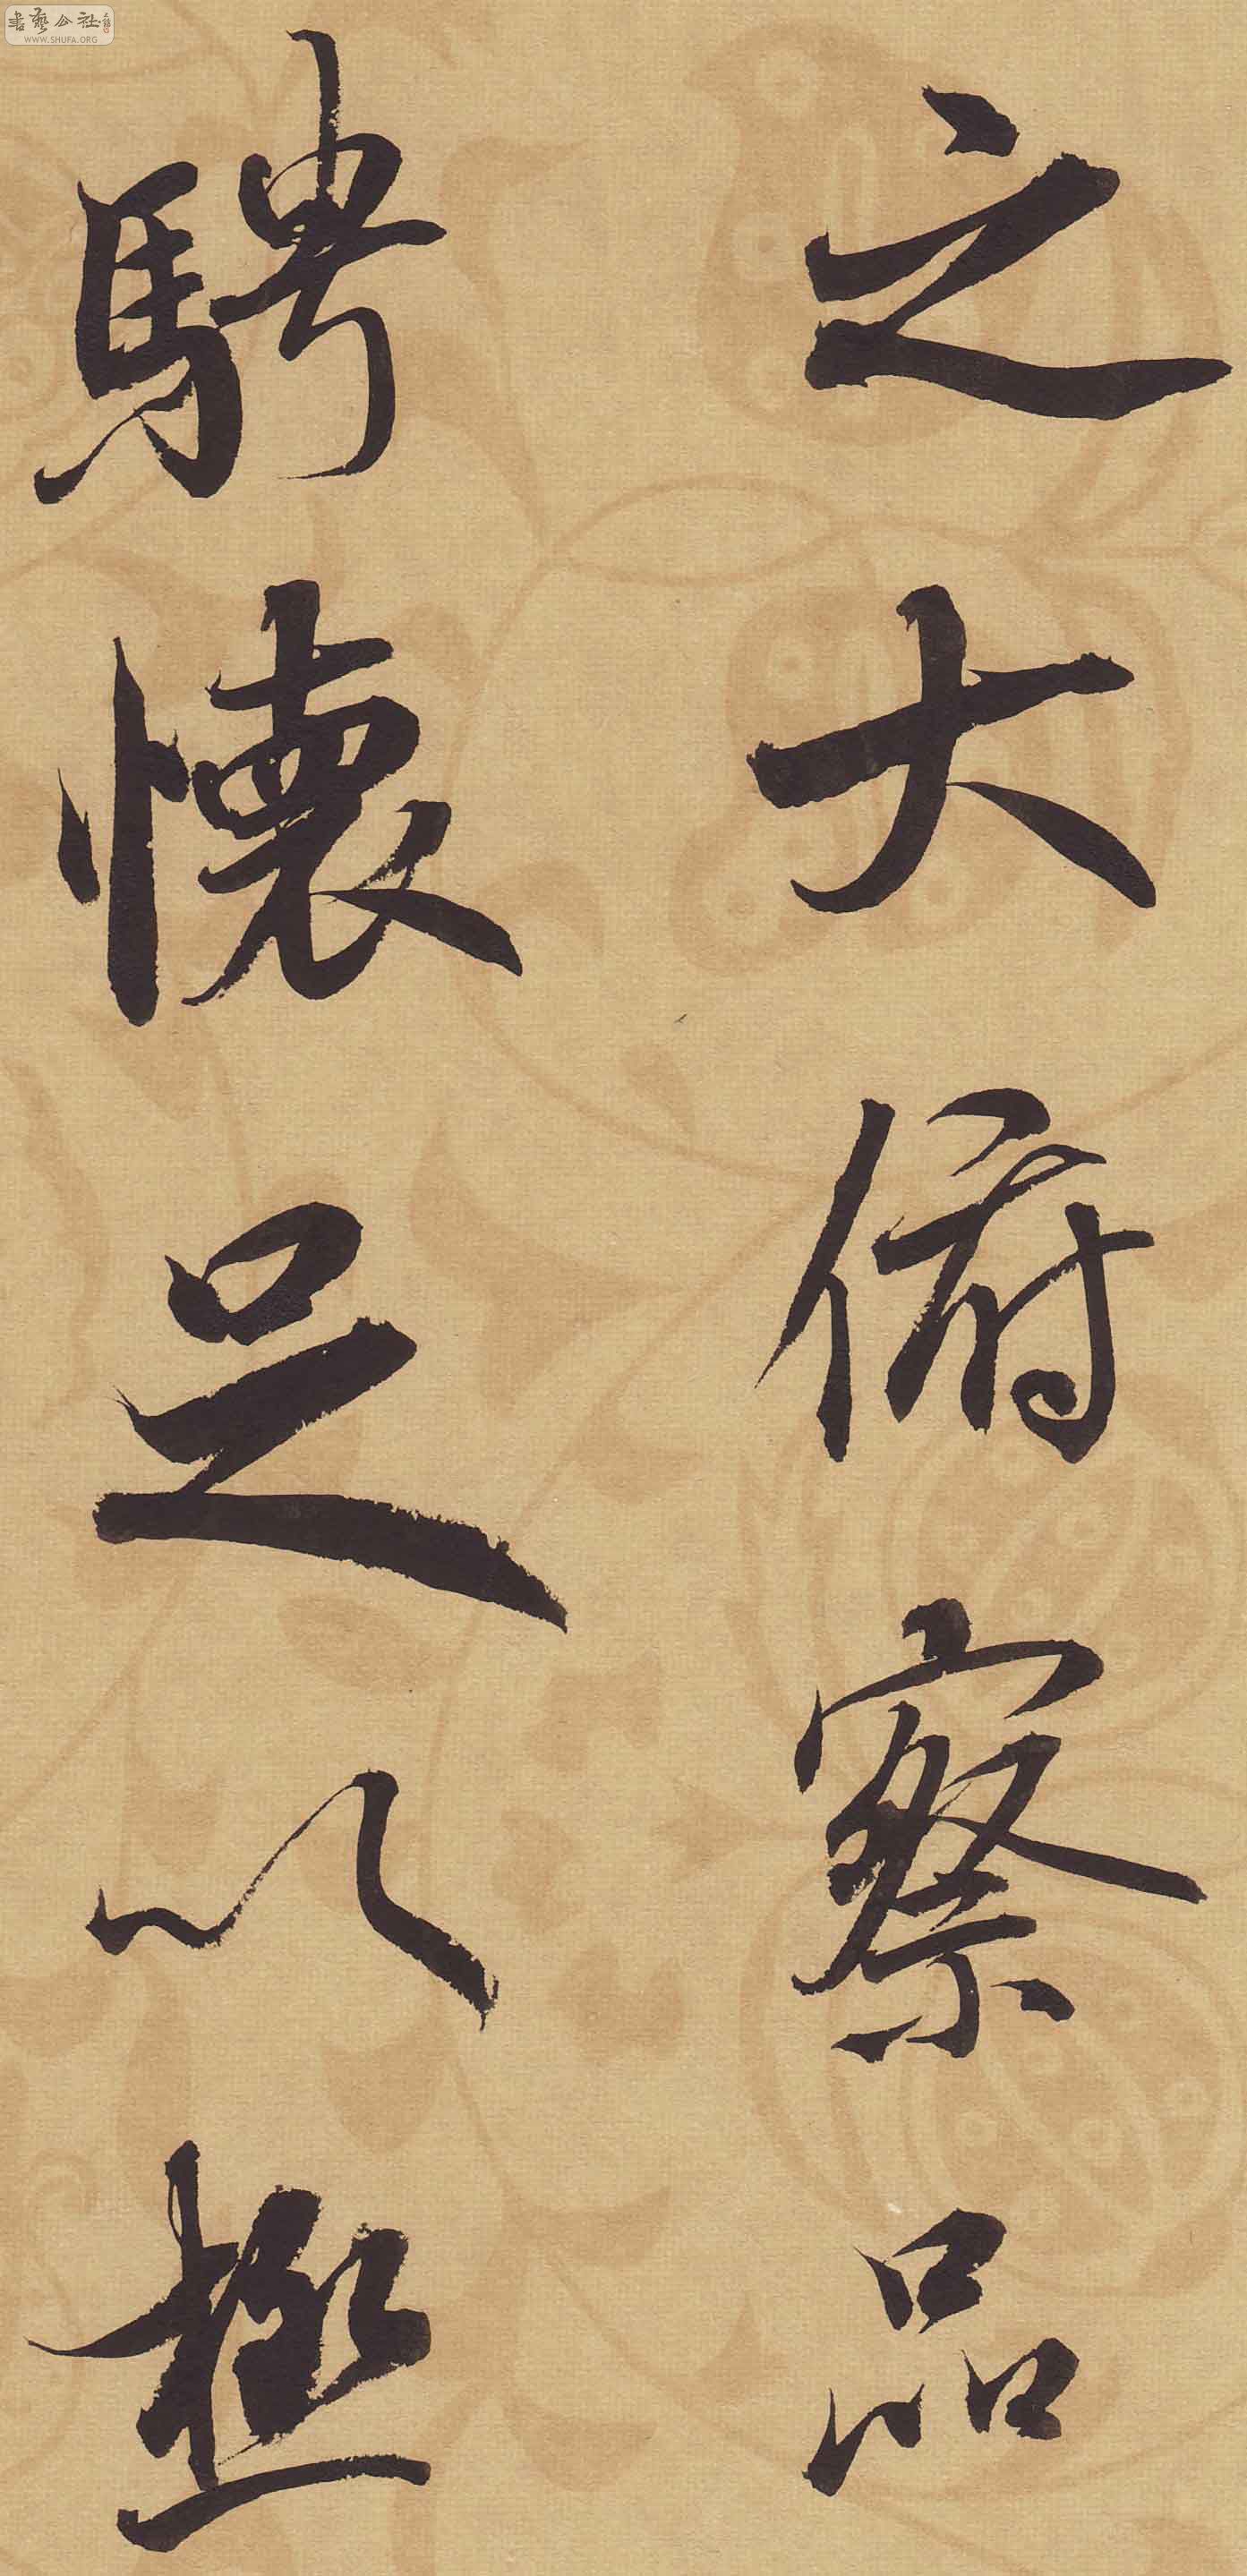 之大俯察品
騁懷足以極
書藝公社
WWW.SHUFA.ORG